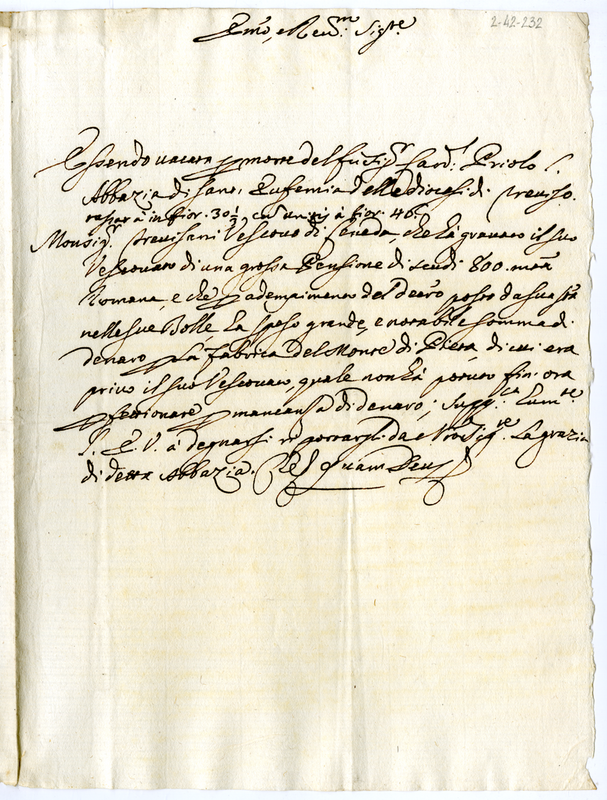 2-42-232
Em.o, e Reu.mo Sig.re
Essendo uacata p morte del fù Sig.r Card. Priolo l'
Abbazia di Sant' Eufemia della diocesi di Treuiso.
tassata in fior. 30 1/3, cu' unitis à fior. 40.
Monsig.r Treuisani Vescouo di Ceneda, che hà grauato il suo
Vescouato di una grossa Pensione di scudi 800. mta
Romana, e che p adempimento del decto posto da sua Stà
nelle sue Bolle hà speso grande, e notabile somma di
denaro p la fabrica del Monte di Pietà, di cui era
priuo il suo Vescouato, quale non hà potuto fin' ora
pfettionare p mancanza di denaro; supp.ca hum.te
l' E. V. à degnarsi di portarli da N'ro Sig.re la grazia
di detta Abbazia. Quam Deus